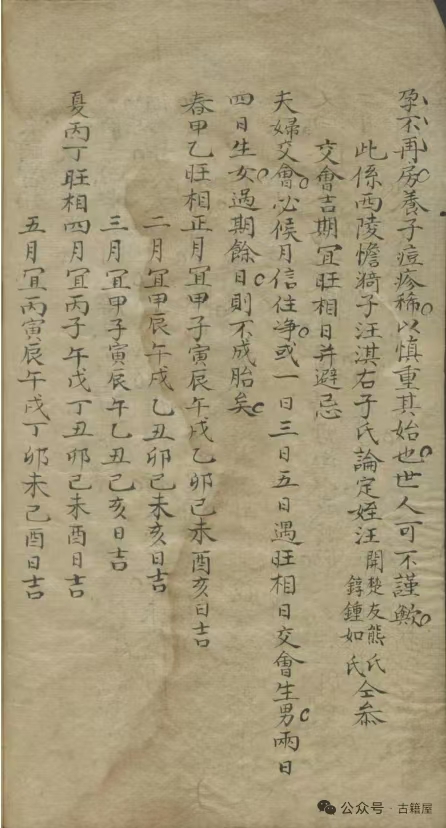 孕不再房養子痘疹稀以慎重其始也世人可不謹歟
此係西陵憺漪子汪淇右子氏論定姪汪開楚友熊氏錞鍾如氏仝叅
交會吉期宜旺相日并避忌
夫婦交會必候月信住净或一日三日五日遇旺相日交會生男兩日
四日生女過期餘日則不成胎矣
春甲乙旺相正月宜甲子寅辰午戌乙卯己未酉亥日吉
二月宜甲辰午戌乙丑卯己未亥日吉
三月宜甲子寅辰午乙丑己亥日吉
夏丙丁旺相四月宜丙子午戊丁丑卯己未酉日吉
五月宜丙寅辰午戌丁卯未己酉日吉
公众号·古籍屋